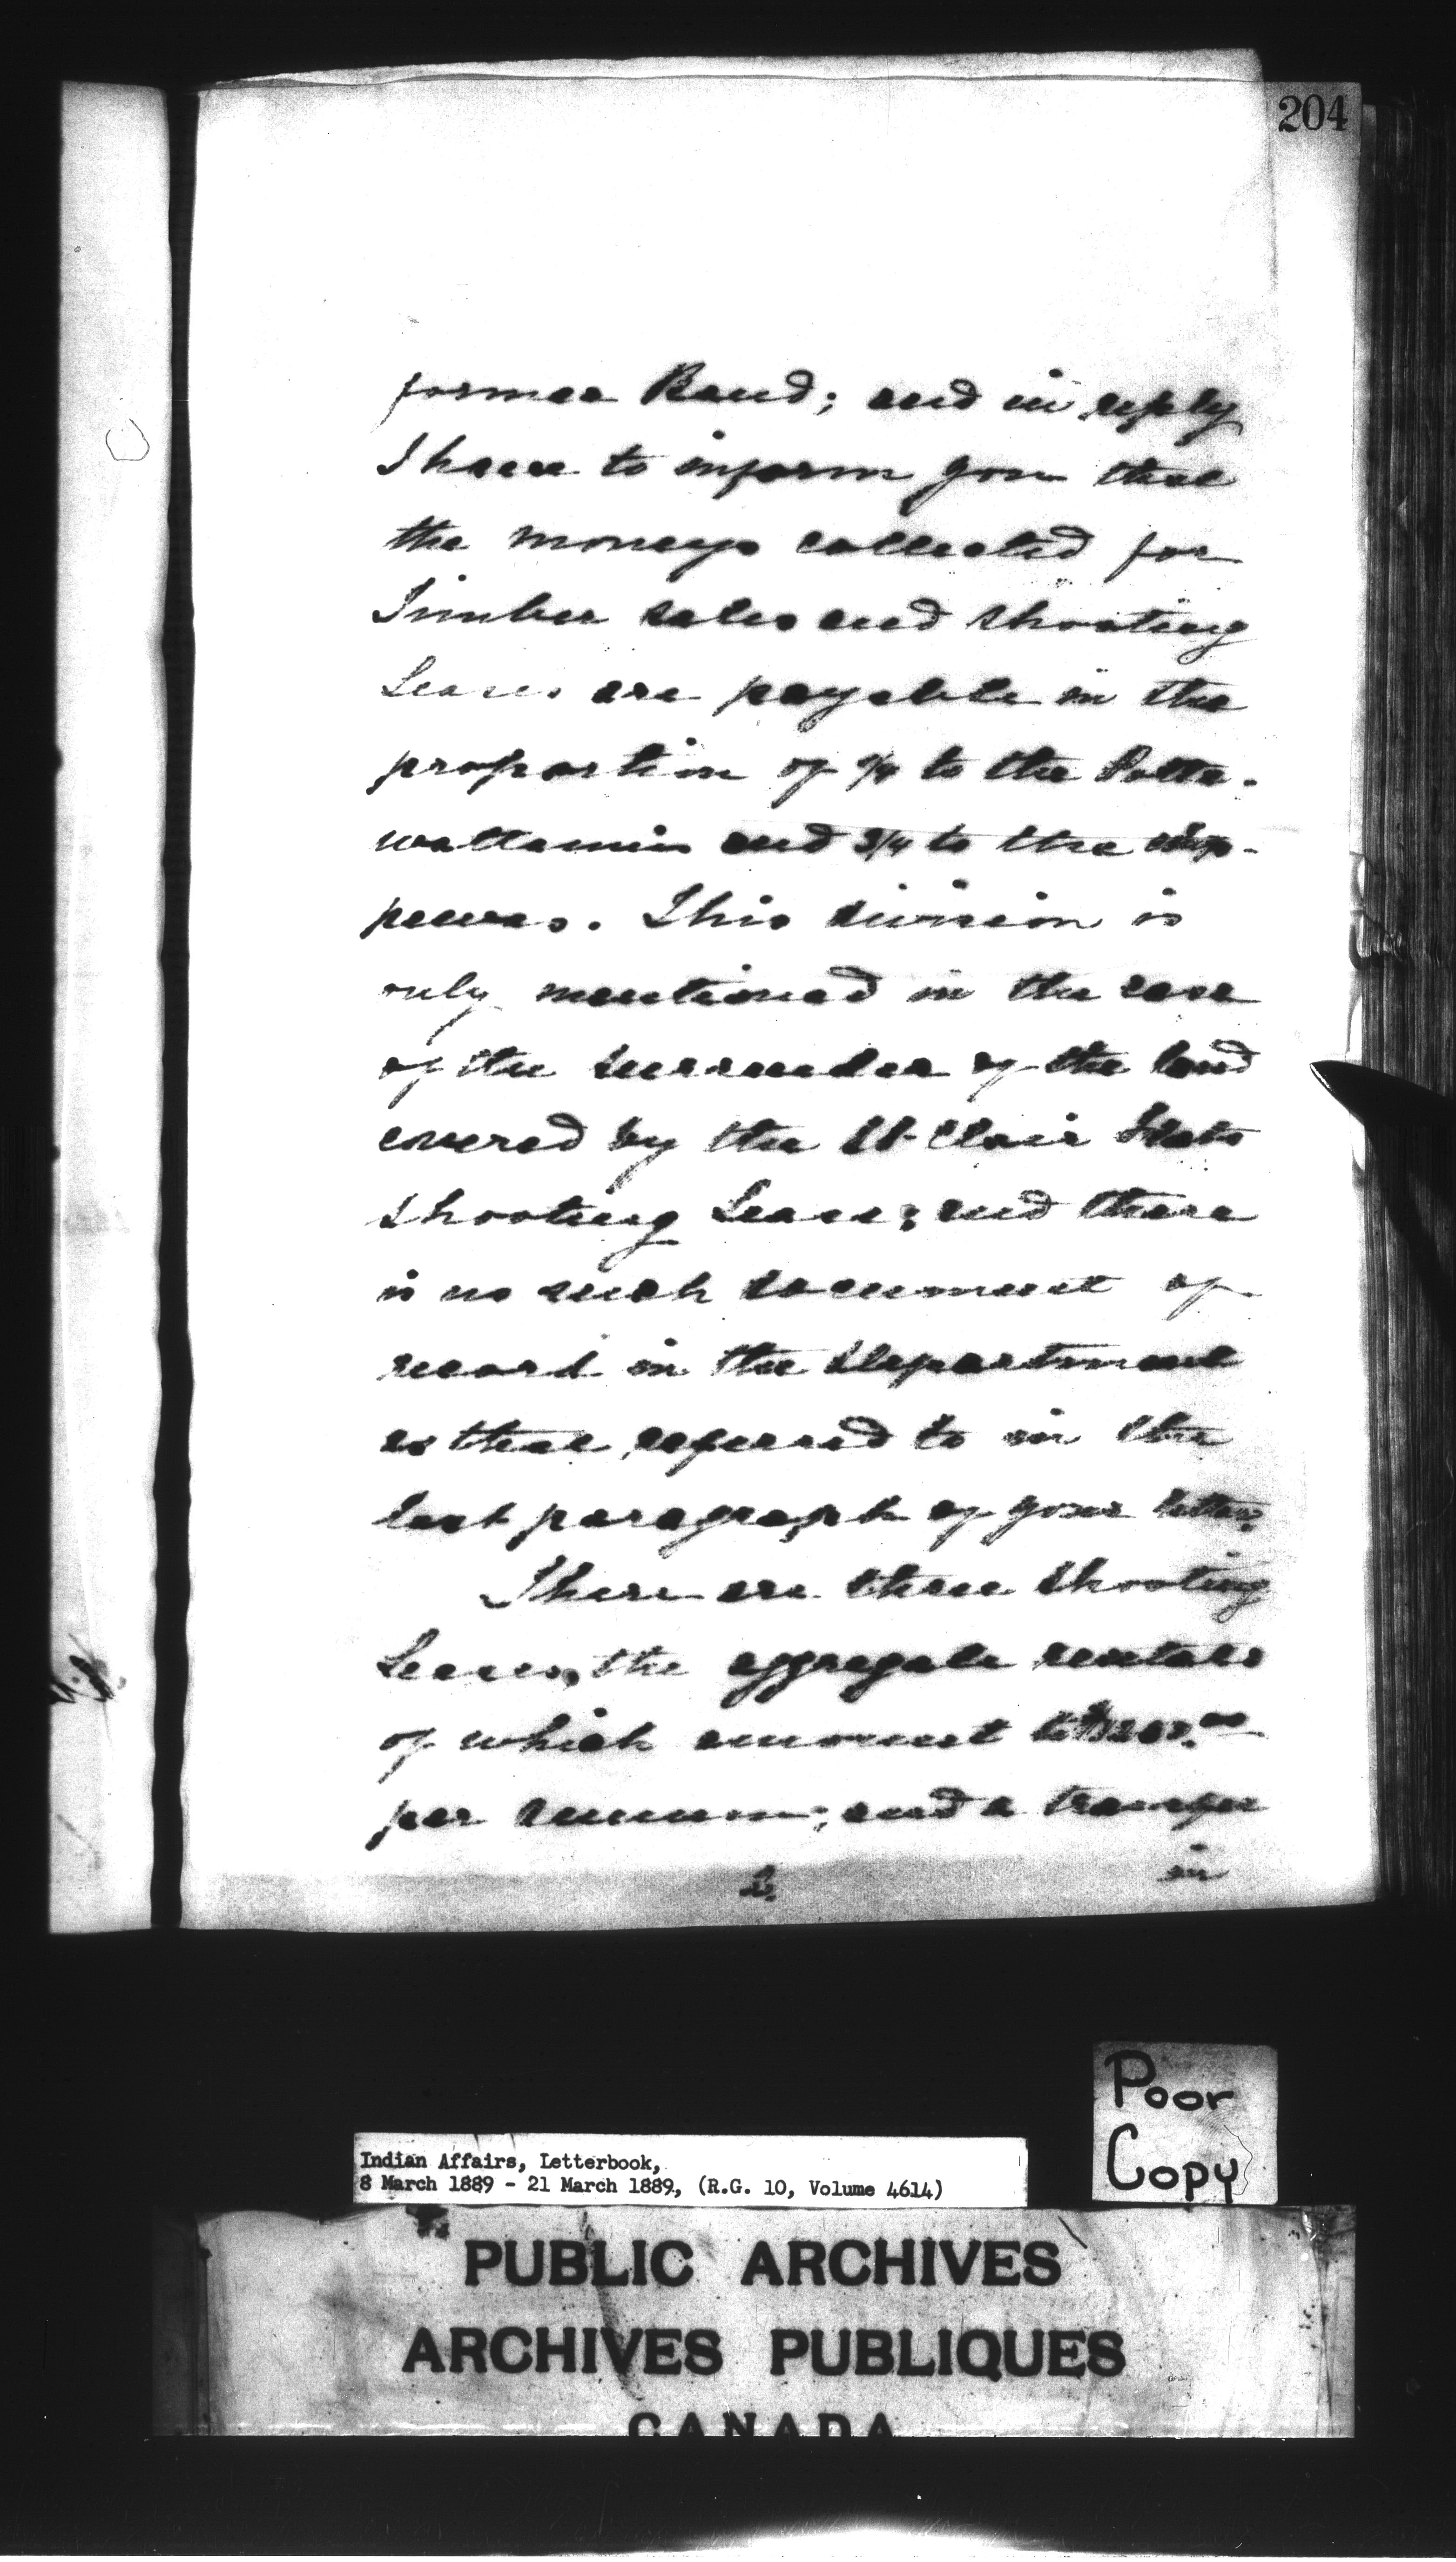 204
former Band; and in reply
I have to inform you that
the moneys collected for
Timber sales and shooting
Leases are payable in the
proportion of ¼ to the Potta-
wattamies and 3/4 to the Chip-
pewas. This division is
only mentioned in the case
of the surrender of the land
covered by the St. Clair Flats
shooting Lease; and there
is no such document of
record in the Department
as that referred to in the
last paragraph of your letter.
There are three shooting
Leases, the aggregate rentals
of which amount to
per annum; and a transfer
2. in
Poor
Copy
Indian Affairs, Letterbook,
8 March 1889 - 21 March 1889, (R.G. 10, Volume 4614)
PUBLIC ARCHIVES
ARCHIVES PUBLIQUES
CANADA